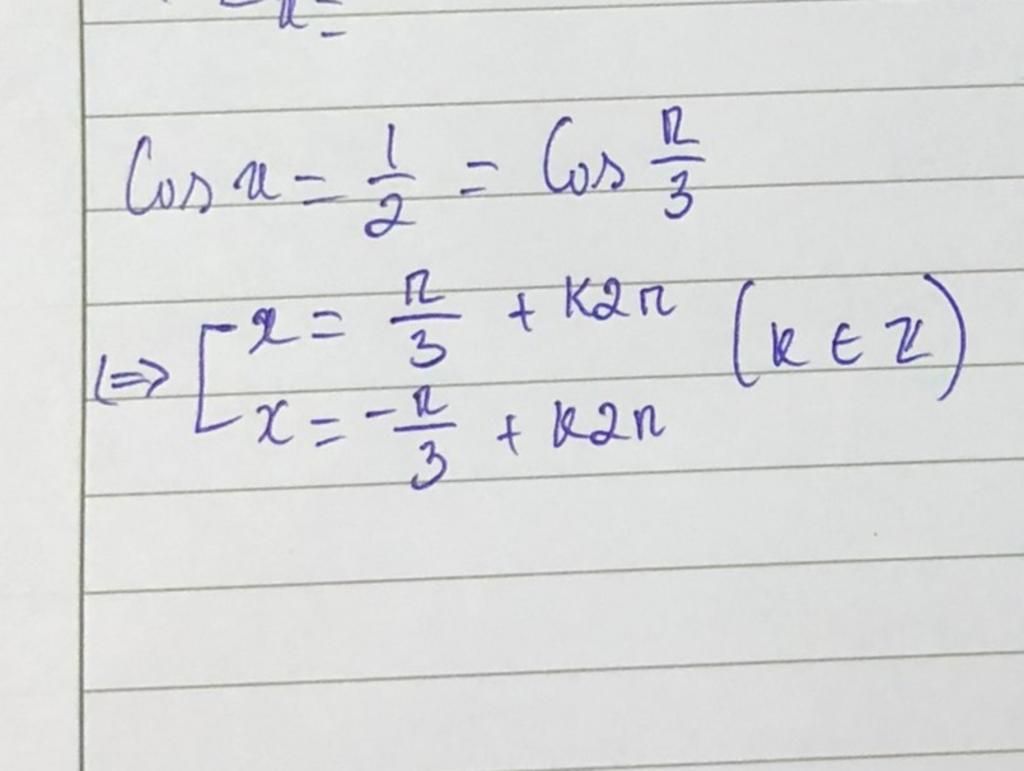 Cos x = 1/2 = Cos π/3
<=> [ x = π/3 + k2π (k ∈ Z)
x = -π/3 + k2π